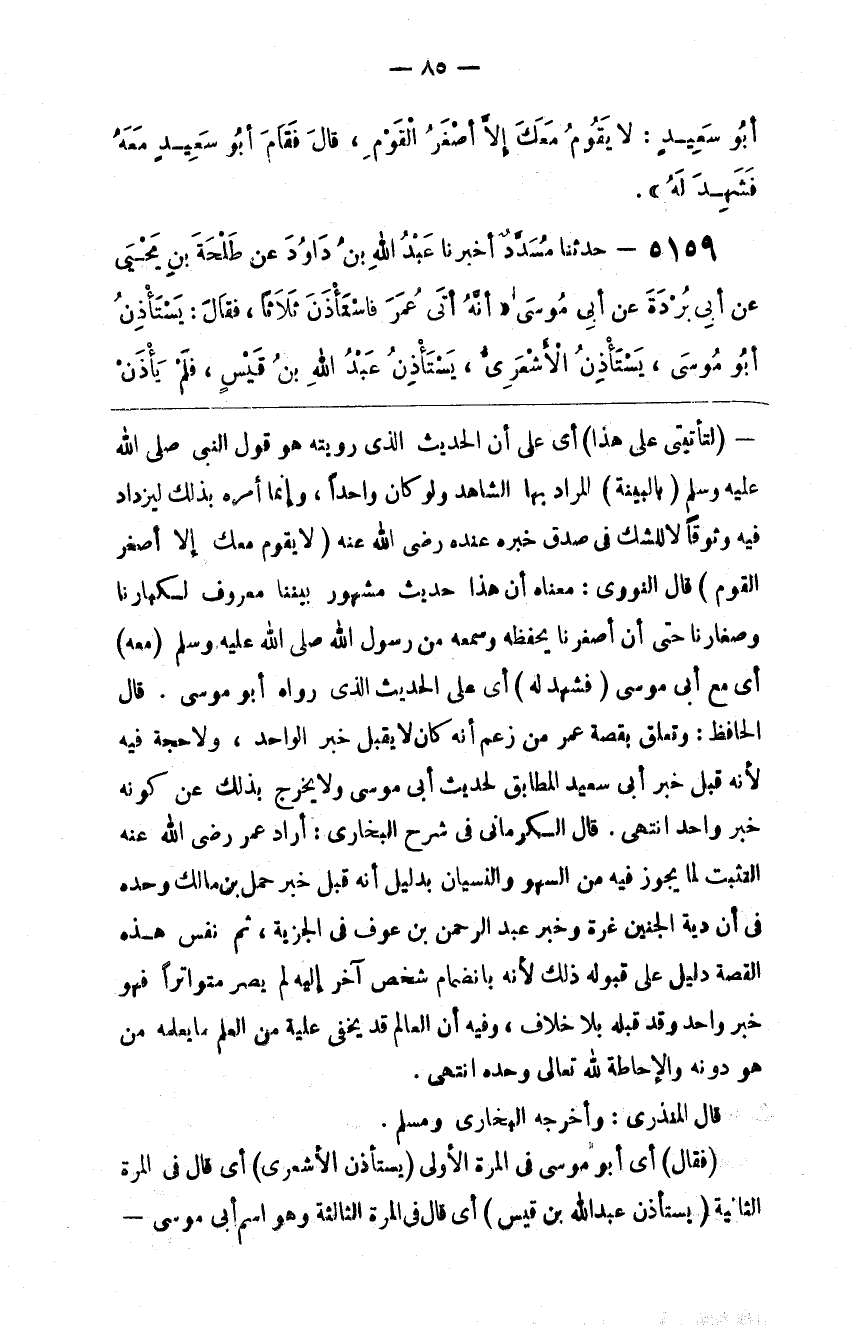 — ٨٥ —
أبُو سَعِيـدٍ : لا يَقُومُ مَعَكَ إلاَّ أصْغَرُ الْقَوْمِ ، قالَ فَقَامَ أبُو سَعِيـدٍ مَعَهُ
فَشَهِـدَ لَهُ » .
٥١٥٩ — حدثنا مُسَدَّدٌ أخبرنا عَبْدُ اللهِ بنُ دَاوُدَ عن طَلْحَةَ بنِ يَحْـيَى
عن أبِي بُرْدَةَ عن أبِي مُوسَى « أنَّهُ أتَى عُمَرَ فاسْتَأْذَنَ ثَلَاثاً ، فقالَ : يَسْتَأْذِنُ
أبُو مُوسَى ، يَسْتَأْذِنُ الْأَشْعَرِىُّ ، يَسْتَأْذِنُ عَبْدُ اللهِ بنُ قَيْسٍ ، فلَمْ يَأْذَنْ
— (لتأتينى على هذا) أى على أن الحديث الذى رويته هو قول النبى صلى الله
عليه وسلم ( بالبينة ) المراد بها الشاهد ولو كان واحداً ، وإنما أمره بذلك ليزداد
فيه وثوقاً لا للشك فى صدق خبره عنده رضى الله عنه ( لا يقوم معك إلا أصغر
القوم ) قال النووى : معناه أن هذا حديث مشهور بيننا معروف لـكبارنا
وصغارنا حتى أن أصغرنا يحفظه وسمعه من رسول الله صلى الله عليه وسلم (معه)
أى مع أبى موسى ( فشهد له ) أى على الحديث الذى رواه أبو موسى . قال
الحافظ : وتعلق بقصة عمر من زعم أنه كان لا يقبل خبر الواحد ، ولا حجة فيه
لأنه قبل خبر أبى سعيد المطابق لحديث أبى موسى ولا يخرج بذلك عن كونه
خبر واحد انتهى . قال الـكرمانى فى شرح البخارى : أراد عمر رضى الله عنه
التثبت لما يجوز فيه من السهو والنسيان بدليل أنه قبل خبر حمل بن مالك وحده
فى أن دية الجنين غرة وخبر عبد الرحمن بن عوف فى الجزية ، ثم نفس هـذه
القصة دليل على قبوله ذلك لأنه بانضمام شخص آخر إليه لم يصر متواتراً فهو
خبر واحد وقد قبله بلا خلاف ، وفيه أن العالم قد يخفى علية من العلم مايعلمه من
هو دونه والإحاطة لله تعالى وحده انتهى .
قال المنذرى : وأخرجه البخارى ومسلم .
(فقال) أى أبو موسى فى المرة الأولى (يستأذن الأشعرى) أى قال فى المرة
الثانية ( يستأذن عبدالله بن قيس ) أى قال فى المرة الثالثة وهو اسم أبى موسى —